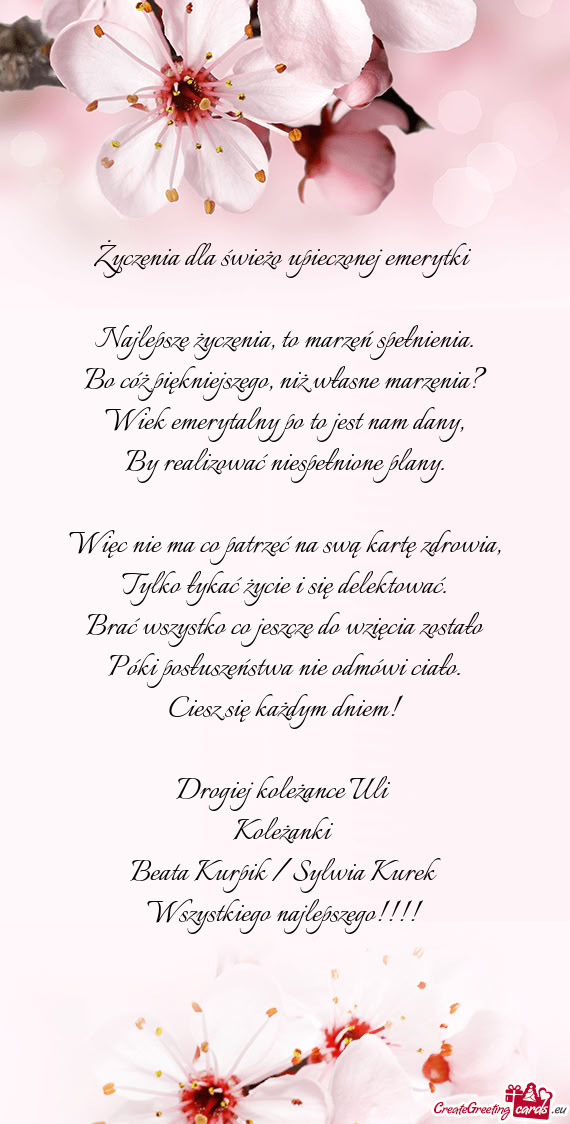 Życzenia dla świeżo upieczonej emerytki
Najlepsze życzenia, to marzeń spełnienia.
Bo cóż piękniejszego, niż własne marzenia?
Wiek emerytalny po to jest nam dany,
By realizować niespełnione plany.
Więc nie ma co patrzeć na swą kartę zdrowia,
Tylko łykać życie i się delektować.
Brać wszystko co jeszcze do wzięcia zostało
Póki posłuszeństwa nie odmówi ciało.
Ciesz się każdym dniem!
Drogiej koleżance Uli
Koleżanki
Beata Kurpik / Sylwia Kurek
Wszystkiego najlepszego!!!!
CreateGreeting cards .eu